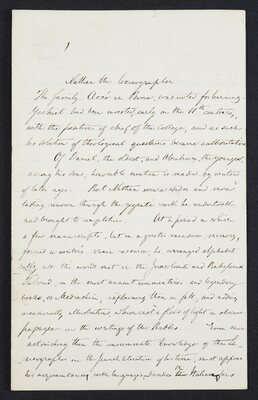 1
Nathan the Lexicographer
The family Anér in Rome, was noted for learning.
Yechiel had been invested, early in the 11th century,
with the position of chief of the College, and as such
his solution of theological questions became authoritative.
Of Daniel, the oldest, and Abraham, the youngest,
among his sons, honorable mention is made by writers
of later age. But Nathan won a wider and more
lasting renown through the gigantic work he undertook
and brought to completion. At a period in which
a few manuscripts, but in a greater measure, memory,
formed a writer's main resource, he arranged alphabeti-
cally all the words met in the Jerusalem and Babylonian
Talmud, in the most ancient commentaries and legendary
works, or Medrashim, explaining them in full, and adding
occasionally illustrations which cast a flood of light on obscure
passages in the writings of the Rabbis. Even more
astonishing than the consummate knowledge of the Lex-
icographer in the Jewish literature of his time, must appear
his acquaintance with languages besides the Hebrew